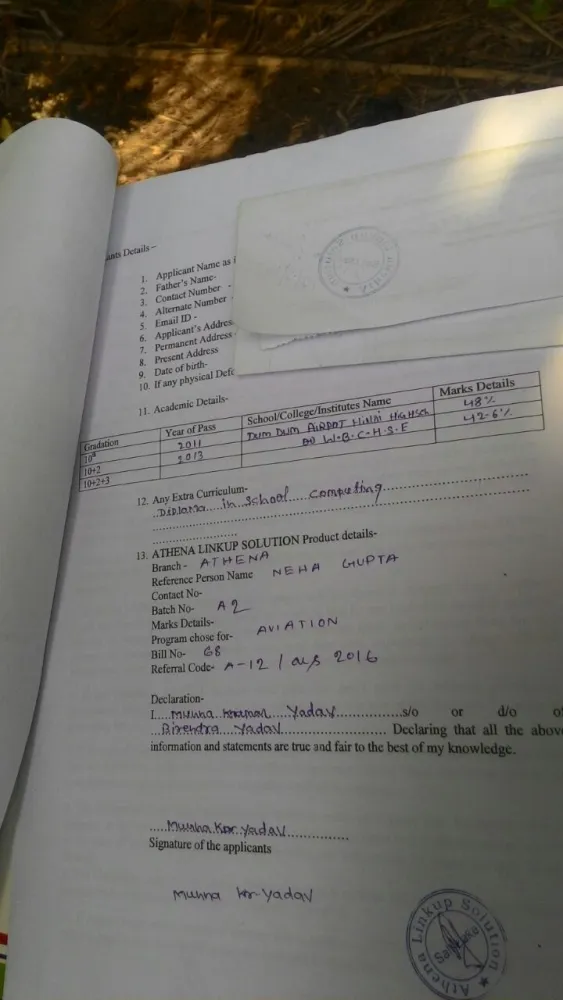 ants Details –
1. Applicant Name as i
2. Father's Name-
3. Contact Number -
4. Alternate Number -
5. Email ID -
6. Applicant's Address
7. Permanent Address -
8. Present Address
9. Date of birth-
10. If any physical Defe
11. Academic Details-
Gradation Year of Pass School/College/Institutes Name Marks Details
10th 2011 DUM DUM AIRPORT HINDI HIGHSCH 48%
10+2 2013 W.B.C.H.S.E 42.6%
10+2+3
12. Any Extra Curriculum-
Diploma in School computing
13. ATHENA LINKUP SOLUTION Product details-
Branch - ATHENA
Reference Person Name NEHA GUPTA
Contact No-
Batch No- A2
Marks Details-
Program chose for- AVIATION
Bill No- 68
Referral Code- A-12 / 2016
Declaration-
I....Munna Kumar Yadav....s/o or d/o of
...Birendra Yadav.... Declaring that all the above
information and statements are true and fair to the best of my knowledge.
....Munna Kor Yadav....
Signature of the applicants
Munna Kr Yadav
Athena Linkup Solution